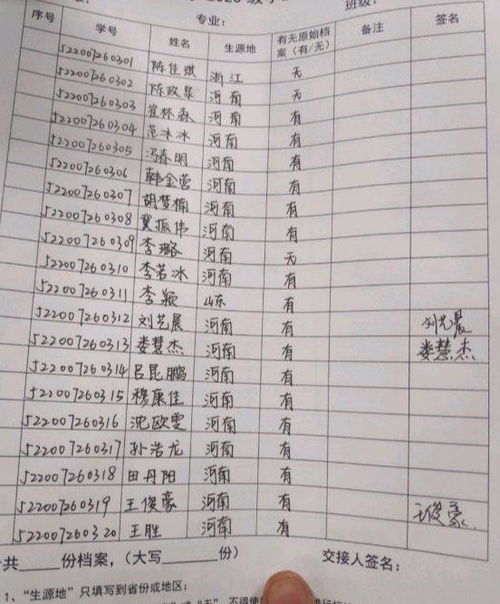 专业： 班级：
序号 学号 姓名 生源地 有无原始档案（有/无） 备注 签名
522007260301 陈佳琪 浙江 无
522007260302 陈政燊 河南 无
522007260303 崔林森 河南 有
522007260304 范冰冰 河南 有
522007260305 冯春明 河南 有
522007260306 韩金营 河南 有
522007260307 胡梦楠 河南 有
522007260308 冀振伟 河南 有
522007260309 李璐 河南 无
522007260310 李若冰 河南 有
522007260311 李颖 山东 有
522007260312 刘艺晨 河南 有 刘艺晨
522007260313 娄慧杰 河南 有 娄慧杰
522007260314 吕昆鹏 河南 有
522007260315 穆康佳 河南 有
522007260316 沈欧雯 河南 有
522007260317 孙浩龙 河南 有
522007260318 田丹阳 河南 有
522007260319 王俊豪 河南 有 王俊豪
522007260320 王胜 河南 有
共____份档案，（大写____份） 交接人签名：
1、“生源地”只填写到省份或地区；